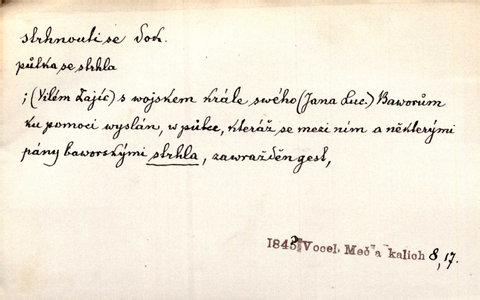 strhnouti se dok.
půtka se strhla
; (Vilém Zajíc) s wojskem krále swého (Jana Luc.) Baworům
ku pomoci wyslán, w půtce, kteráž se mezi ním a některými
pány baworskými strhla, zawražděn gest,
1843 Vocel, Meč a kalich 8, 17.